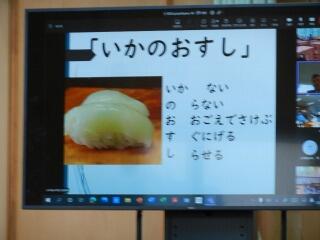 「いかのおすし」
いか　ない
の　らない
お　おごえでさけぶ
す　ぐにげる
し　らせる